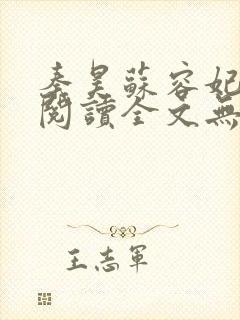 秦昊蘇容妃
閱讀全文無
王志軍